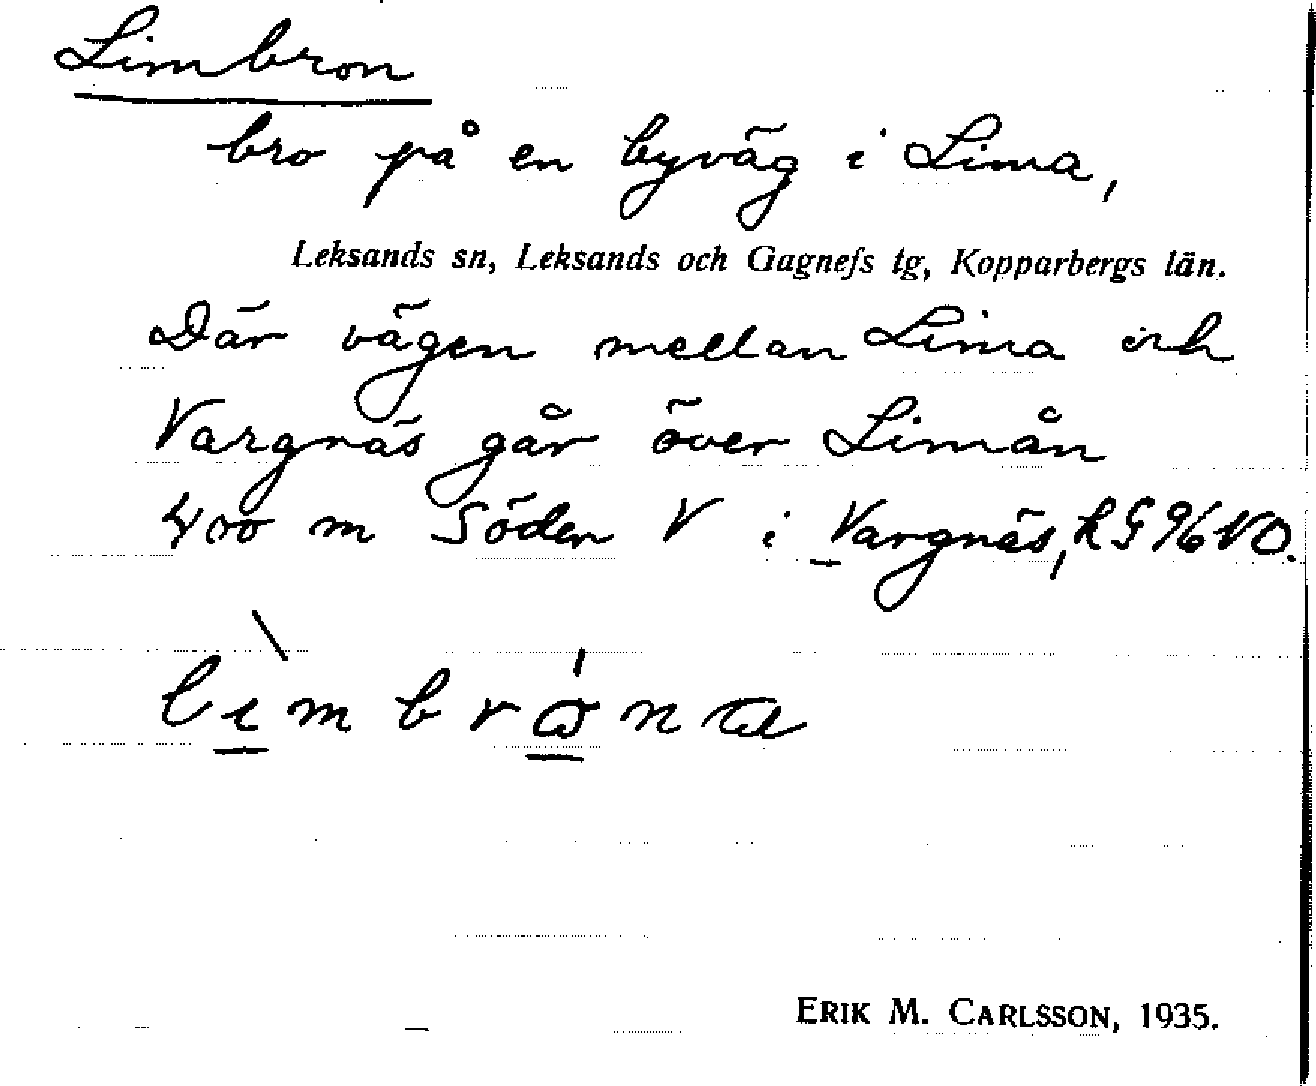 Limbron
bro på en byväg i Lima,
Leksands sn, Leksands och Gagnefs tg, Kopparbergs län.
Där vägen mellan Lima och
Vargnäs går över Limån
400 m Söder V i Vargnäs, RG 96 NO.
ERIK M. CARLSSON, 1935.